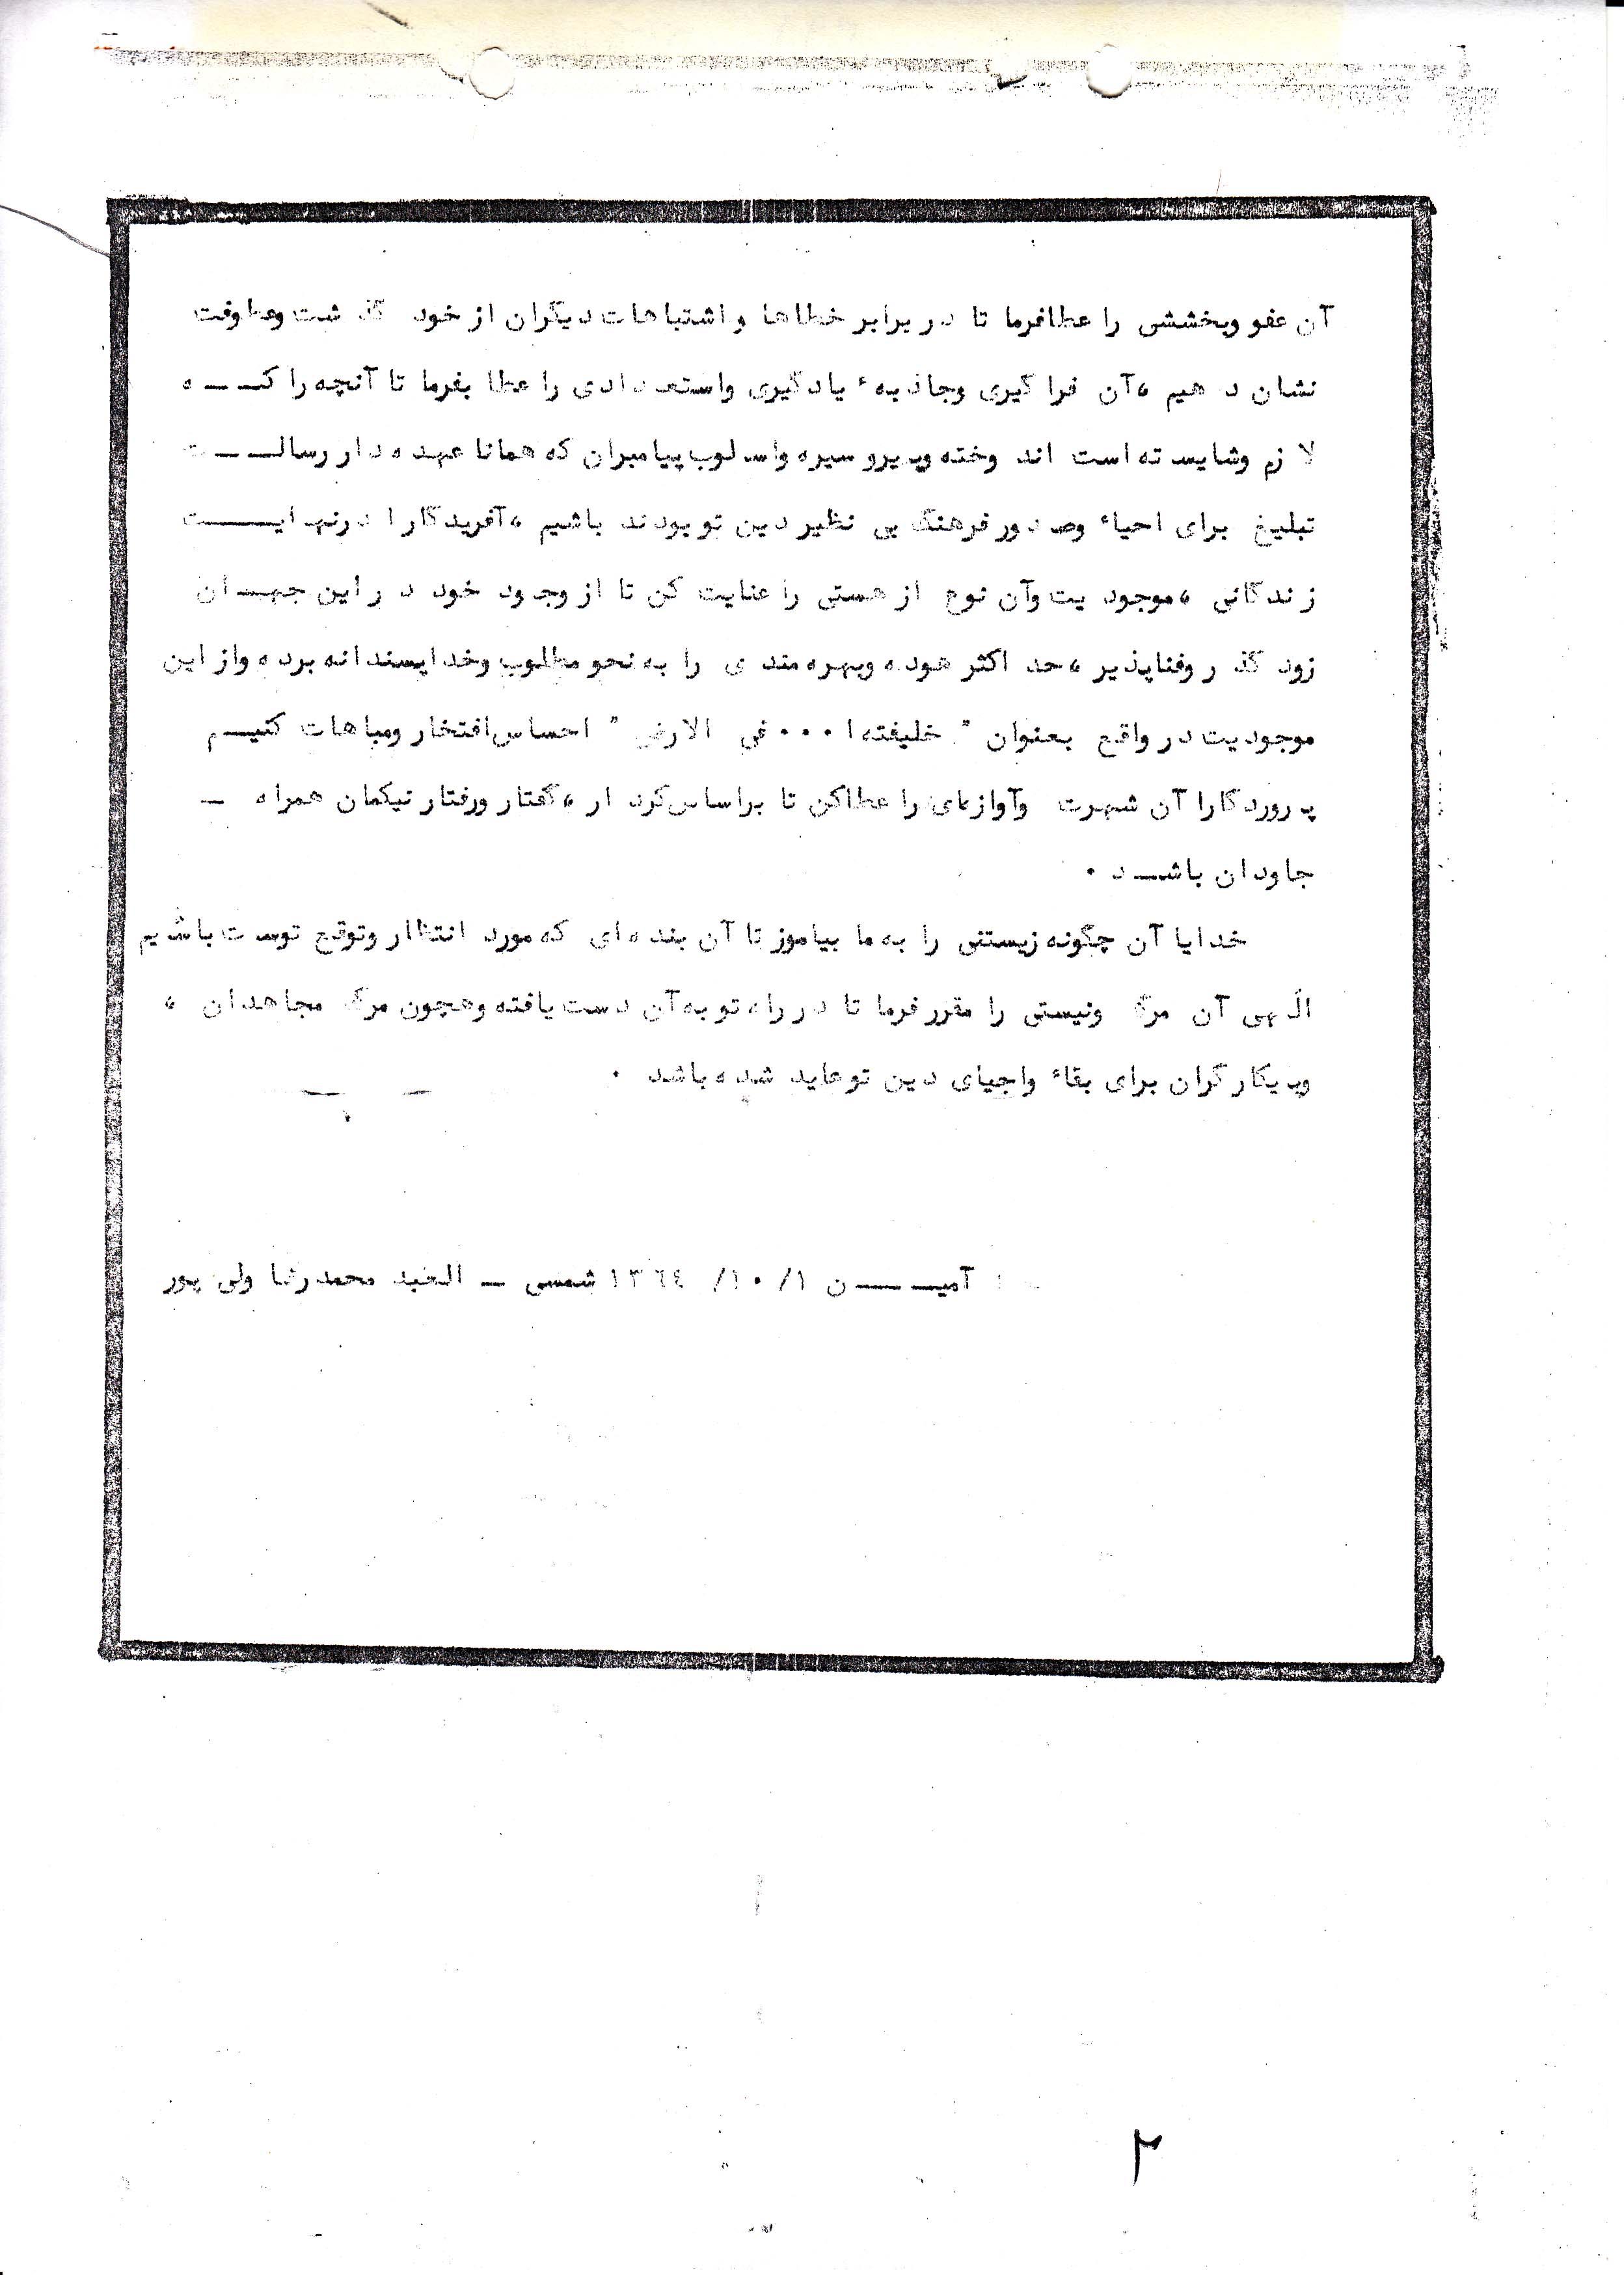 آن عفو وبخششی را عطافرما تا در برابر خطاها و اشتباهات دیگران از خود گذشت وعطوفت
نشان دهیم ،آن فراگیری وجاذبهء یادگیری واستعدادی را عطا بفرما تا آنچه را کـــه
لازم وشایسته است اندوخته وپیرو سیره واسلوب پیامبران که همانا عهده دار رسالـــت
تبلیغ برای احیاء وصدور فرهنگ بی نظیر دین تو بودند باشیم ،آفریدگارا درنهایــــت
زندگانی ،موجودیت وآن نوع از هستی را عنایت کن تا از وجود خود در این جهــان
زود گذر وفناپذیر ،حد اکثر هوده وبهره مندی را به نحو مطلوب وخداپسندانه برده واز این
موجودیت در واقع بعنوان " خلیفته ا ۰۰۰ فی الارض " احساس افتخار ومباهات کنیــم
پروردگارا آن شهرت وآوازه‌ای را عطاکن تا براساس کردار ،گفتار ورفتار نیکمان همراه ـ
جاودان باشــد ۰
خدایا آن چگونه زیستنی را به ما بیاموز تا آن بنده ای که مورد انتظار وتوقع توست باشیم
الّهی آن مرگ ونیستی را مقرر فرما تا در راه تو به آن دست یافته وهچون مرگ مجاهدان ،
وپیکارگران برای بقاء واحیای دین تو عاید شده باشد ۰
آمیــــن ۱/ ۱۰/ ۱۳٦٤ شمسی ـ العبد محمدرضا ولی پور
۲